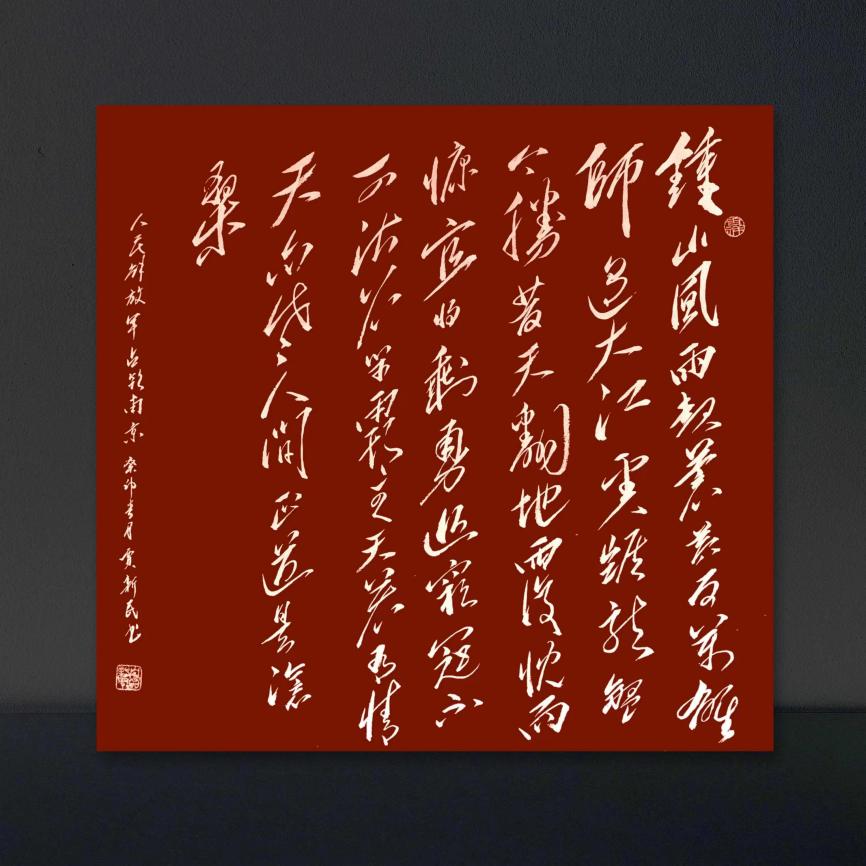 鍾山風雨起蒼黃百萬雄
師過大江虎踞龍盤
今勝昔天翻地覆慨而
慷宜将剩勇追窮寇不
可沽名學霸王天若有情
天亦老人間正道是滄
桑
人民解放軍占領南京 癸卯春月 賈新民书